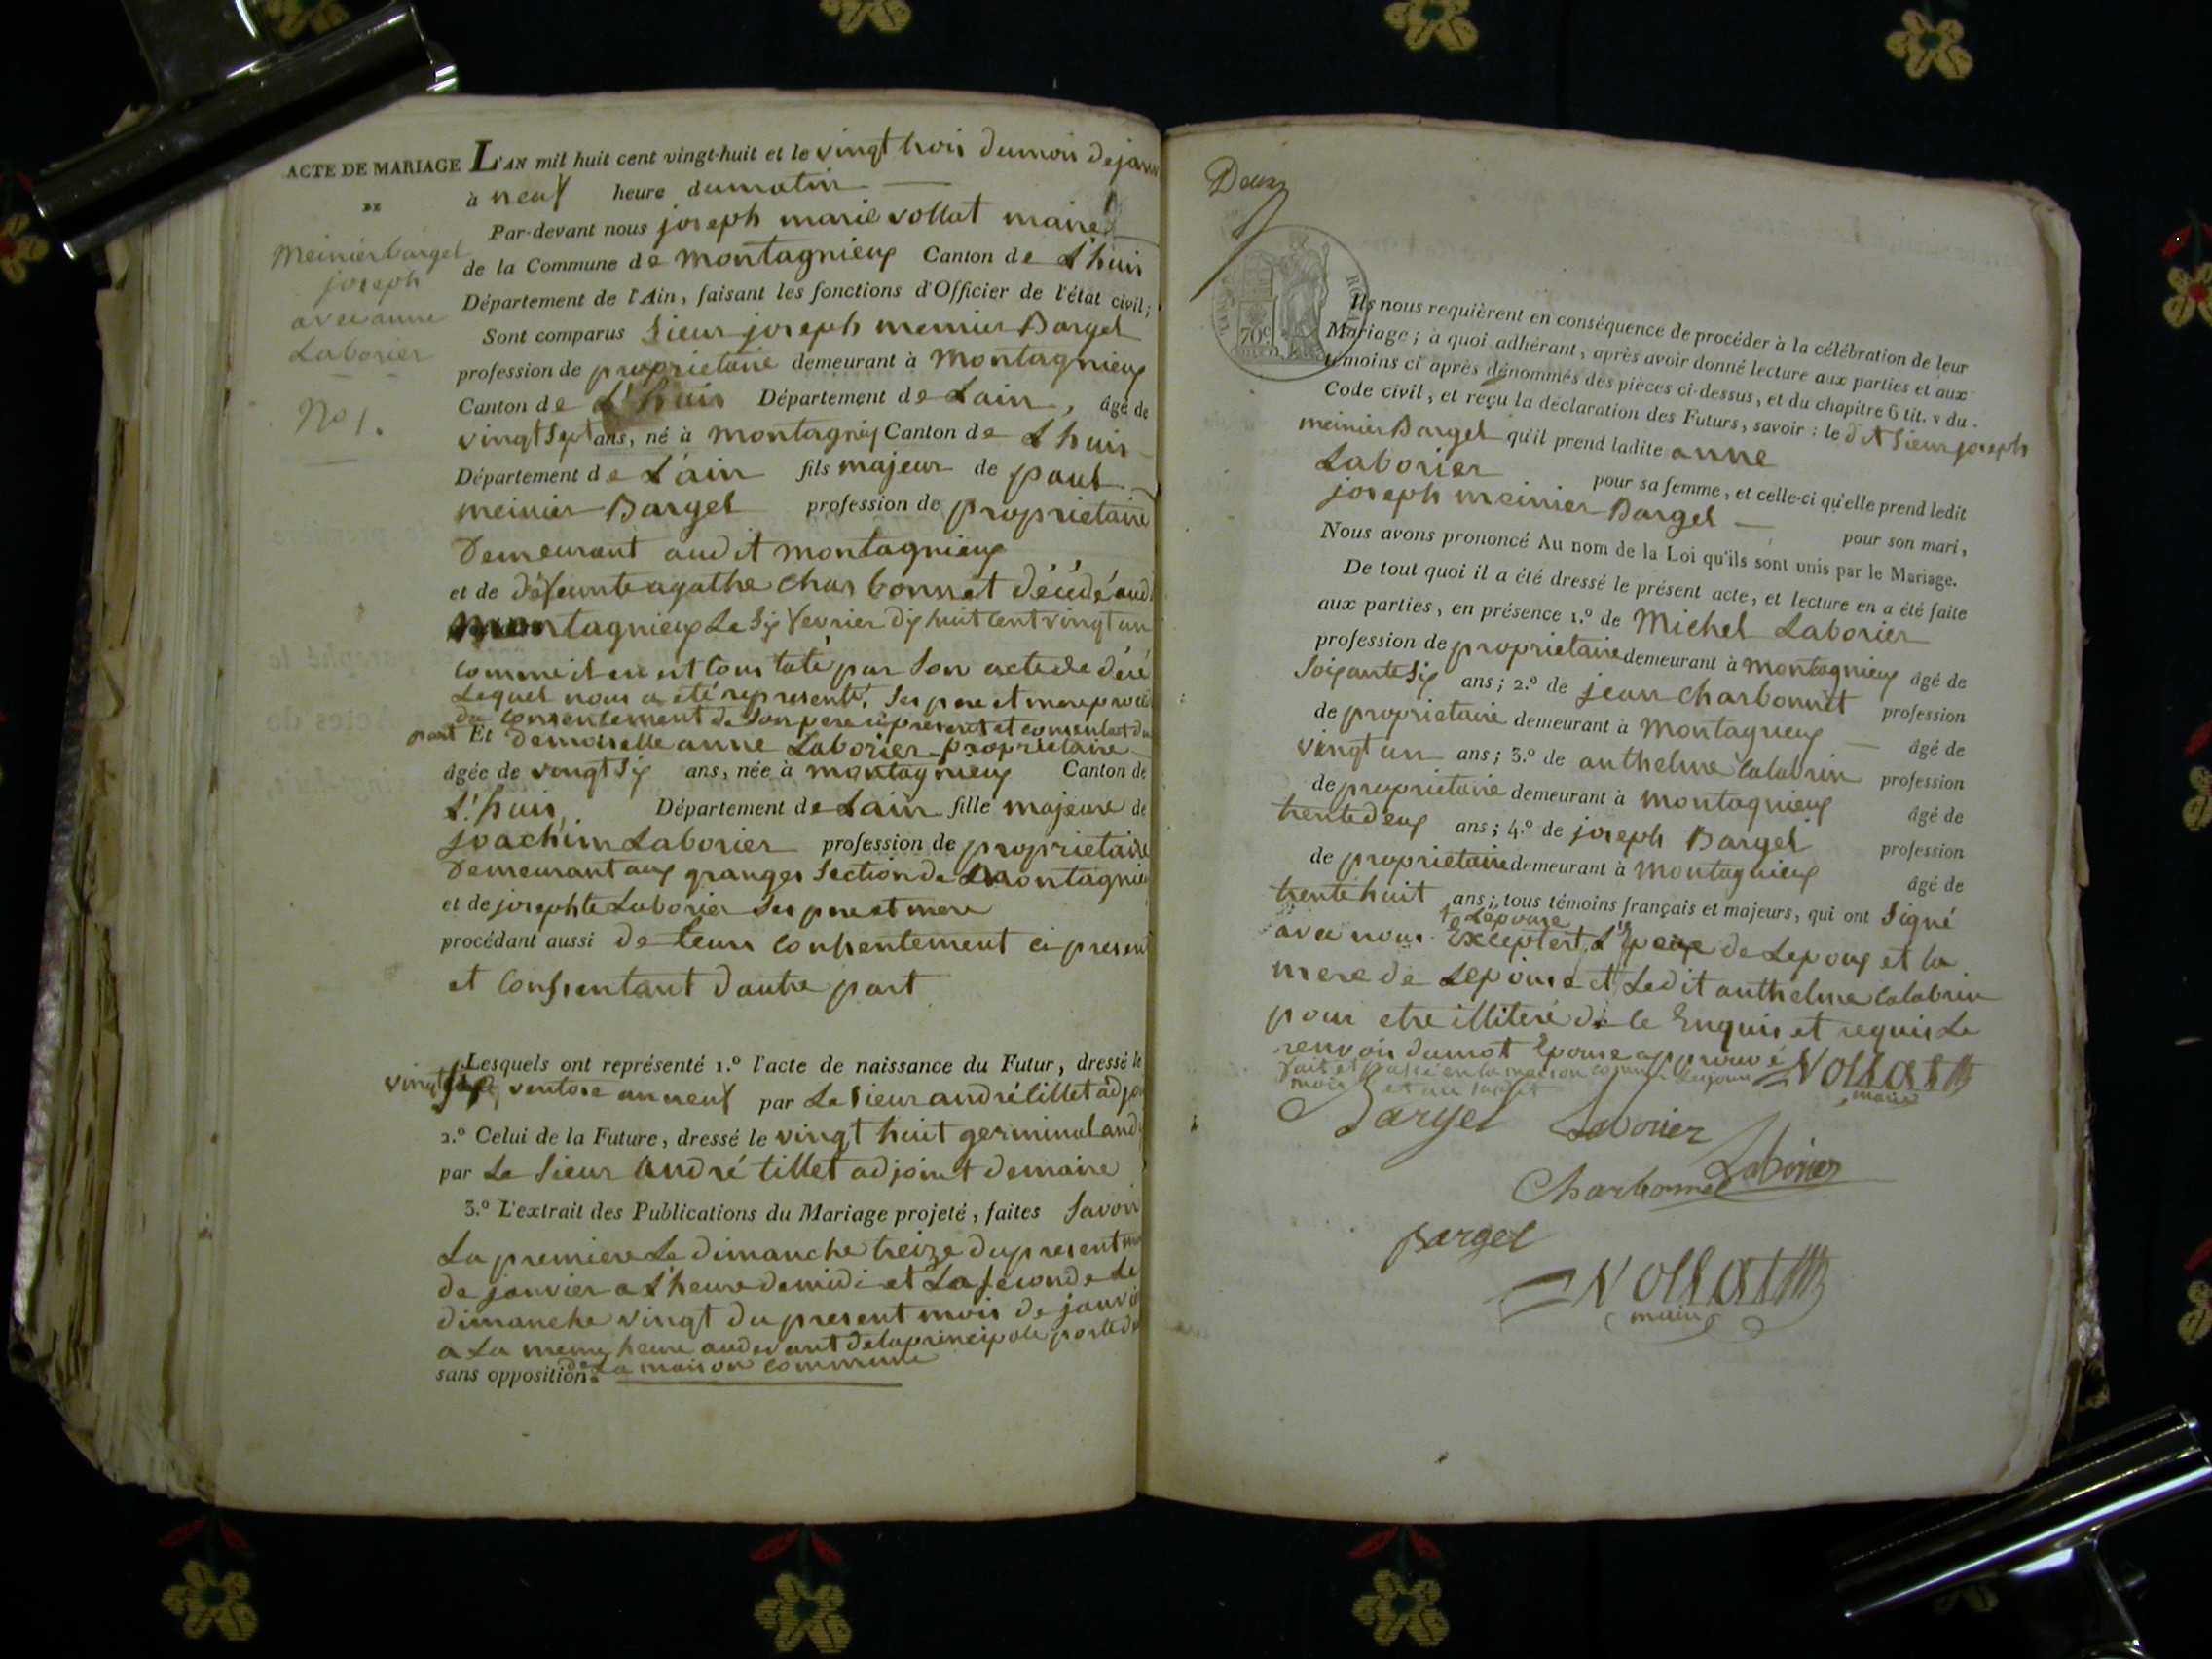 ACTE DE MARIAGE
DE
meinier bargel
joseph
avec anne
Laborier
No 1.
L'AN mil huit cent vingt-huit et le vingt trois du mois de janv
à neuf heure du matin
Par-devant nous joseph marie vollat maire
de la Commune de montagnieux Canton de L'huis
Département de l'Ain, faisant les fonctions d'Officier de l'état civil;
Sont comparus Sieur joseph meinier Bargel
profession de proprietaire demeurant à montagnieux
Canton de L'huis Département de Lain, âgé de
vingt sept ans, né à montagnieux Canton de L'huis
Département de L'ain fils majeur de paul
meinier Bargel profession de proprietaire
Demeurant audit montagnieux
et de défeunte agathe charbonnet décédé aud
montagnieux Le six fevrier dix huit cent vingt un
comme il en est constaté par son acte de décè
Lequel nous a été representé, ses pere et mere procé
du consentement de son pere ci present et consentant d'u
part Et Demoiselle anne Laborier proprietaire
âgée de vingt six ans, née à montagnieux Canton de
L'huis, Département de Lain fille majeure de
joachim Laborier profession de proprietaire
Demeurant aux granges Section de montagnieu
et de josephte Laborier ses pere et mere
procédant aussi de leur consentement ci present
et consentant d'autre part
Lesquels ont représenté 1.º l'acte de naissance du Futur, dressé le
vingt ventose an neuf par Le Sieur andré tillet adjoi
2.º Celui de la Future, dressé le vingt huit germinal an
par Le Sieur andré tillet adjoint de maire
3.º L'extrait des Publications du Mariage projeté, faites Savoir
La premiere Le dimanche treize du present mo
de janvier a L'heure de midi et La seconde Le
dimanche vingt du present mois de janvie
a La meme heure au devant de la principale porte de
de La maison commune
sans opposition.
Deux
70 c
Ils nous requièrent en conséquence de procéder à la célébration de leur
Mariage; à quoi adhérant, après avoir donné lecture aux parties et aux
témoins ci après dénommés des pièces ci-dessus, et du chapitre 6 tit. v du
Code civil, et reçu la déclaration des Futurs, savoir : le dit Sieur joseph
meinier Bargel qu'il prend ladite anne
Laborier pour sa femme, et celle-ci qu'elle prend ledit
joseph meinier Bargel pour son mari,
Nous avons prononcé Au nom de la Loi qu'ils sont unis par le Mariage.
De tout quoi il a été dressé le présent acte, et lecture en a été faite
aux parties, en présence 1.º de Michel Laborier
profession de proprietaire demeurant à montagnieux âgé de
soixante six ans; 2.º de jean charbonnet profession
de proprietaire demeurant à montagnieux âgé de
vingt un ans; 3.º de anthelme Calabrin profession
de proprietaire demeurant à montagnieux âgé de
trente deux ans; 4.º de joseph Bargel profession
de proprietaire demeurant à montagnieux âgé de
trente huit ans; tous témoins français et majeurs, qui ont Signé
Lepouse
avec nous Exceptent de Lepoux et la
mere de Lepouse et Ledit anthelme Calabrin
pour etre illiteré de ce Enquis et requis Le
renvoi du mot Epouse approuvé Vollat
maire
fait et passé en la maison commune Les jour
mois et an susdit
Bargel Laborier
Charbonnet Laborier
bargel
Vollat
maire